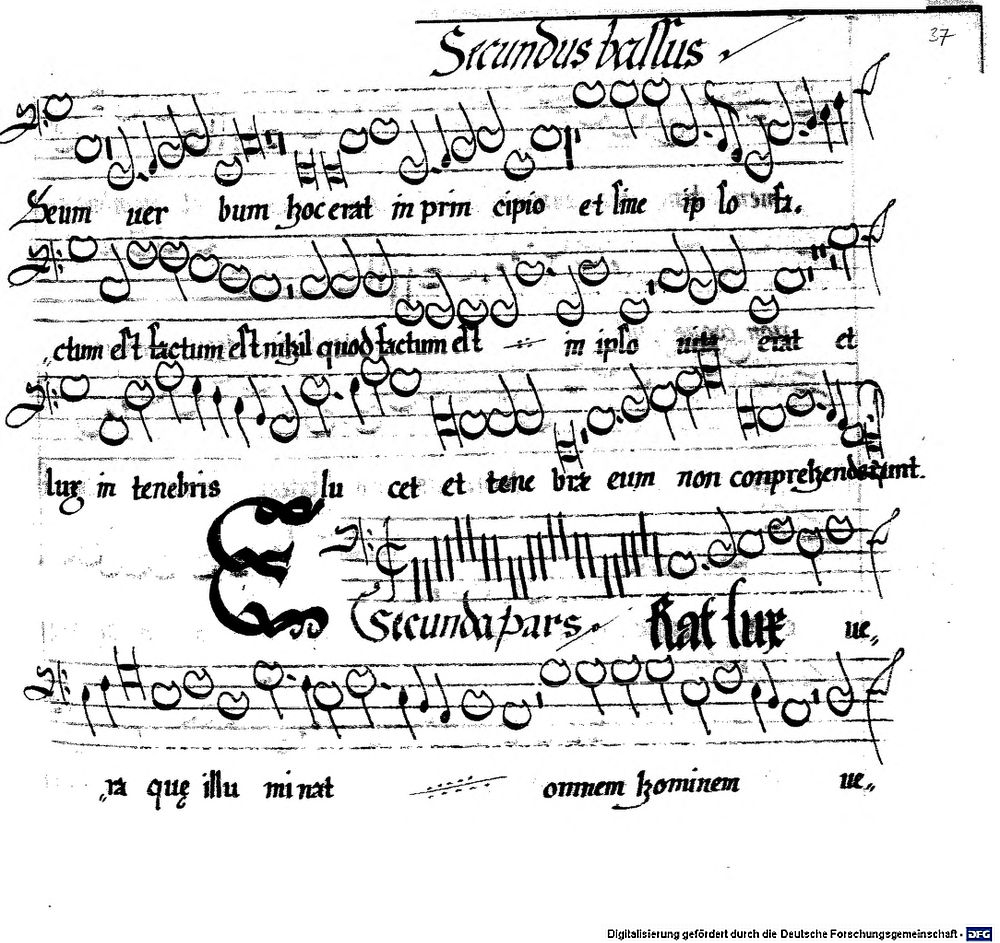 Secundus bassus
37
Seum uer bum hoc erat in prin cipio et sine ip so fa.
ctum est factum est nihil quod factum est in ipso uita erat et
lux in tenebris lu cet et tene bræ eum non conprehenderunt.
Secunda pars
ERat lux ue,,
,,ra quę illu minat omnem hominem ue,,
Digitalisierung gefördert durch die Deutsche Forschungsgemeinschaft - DFG